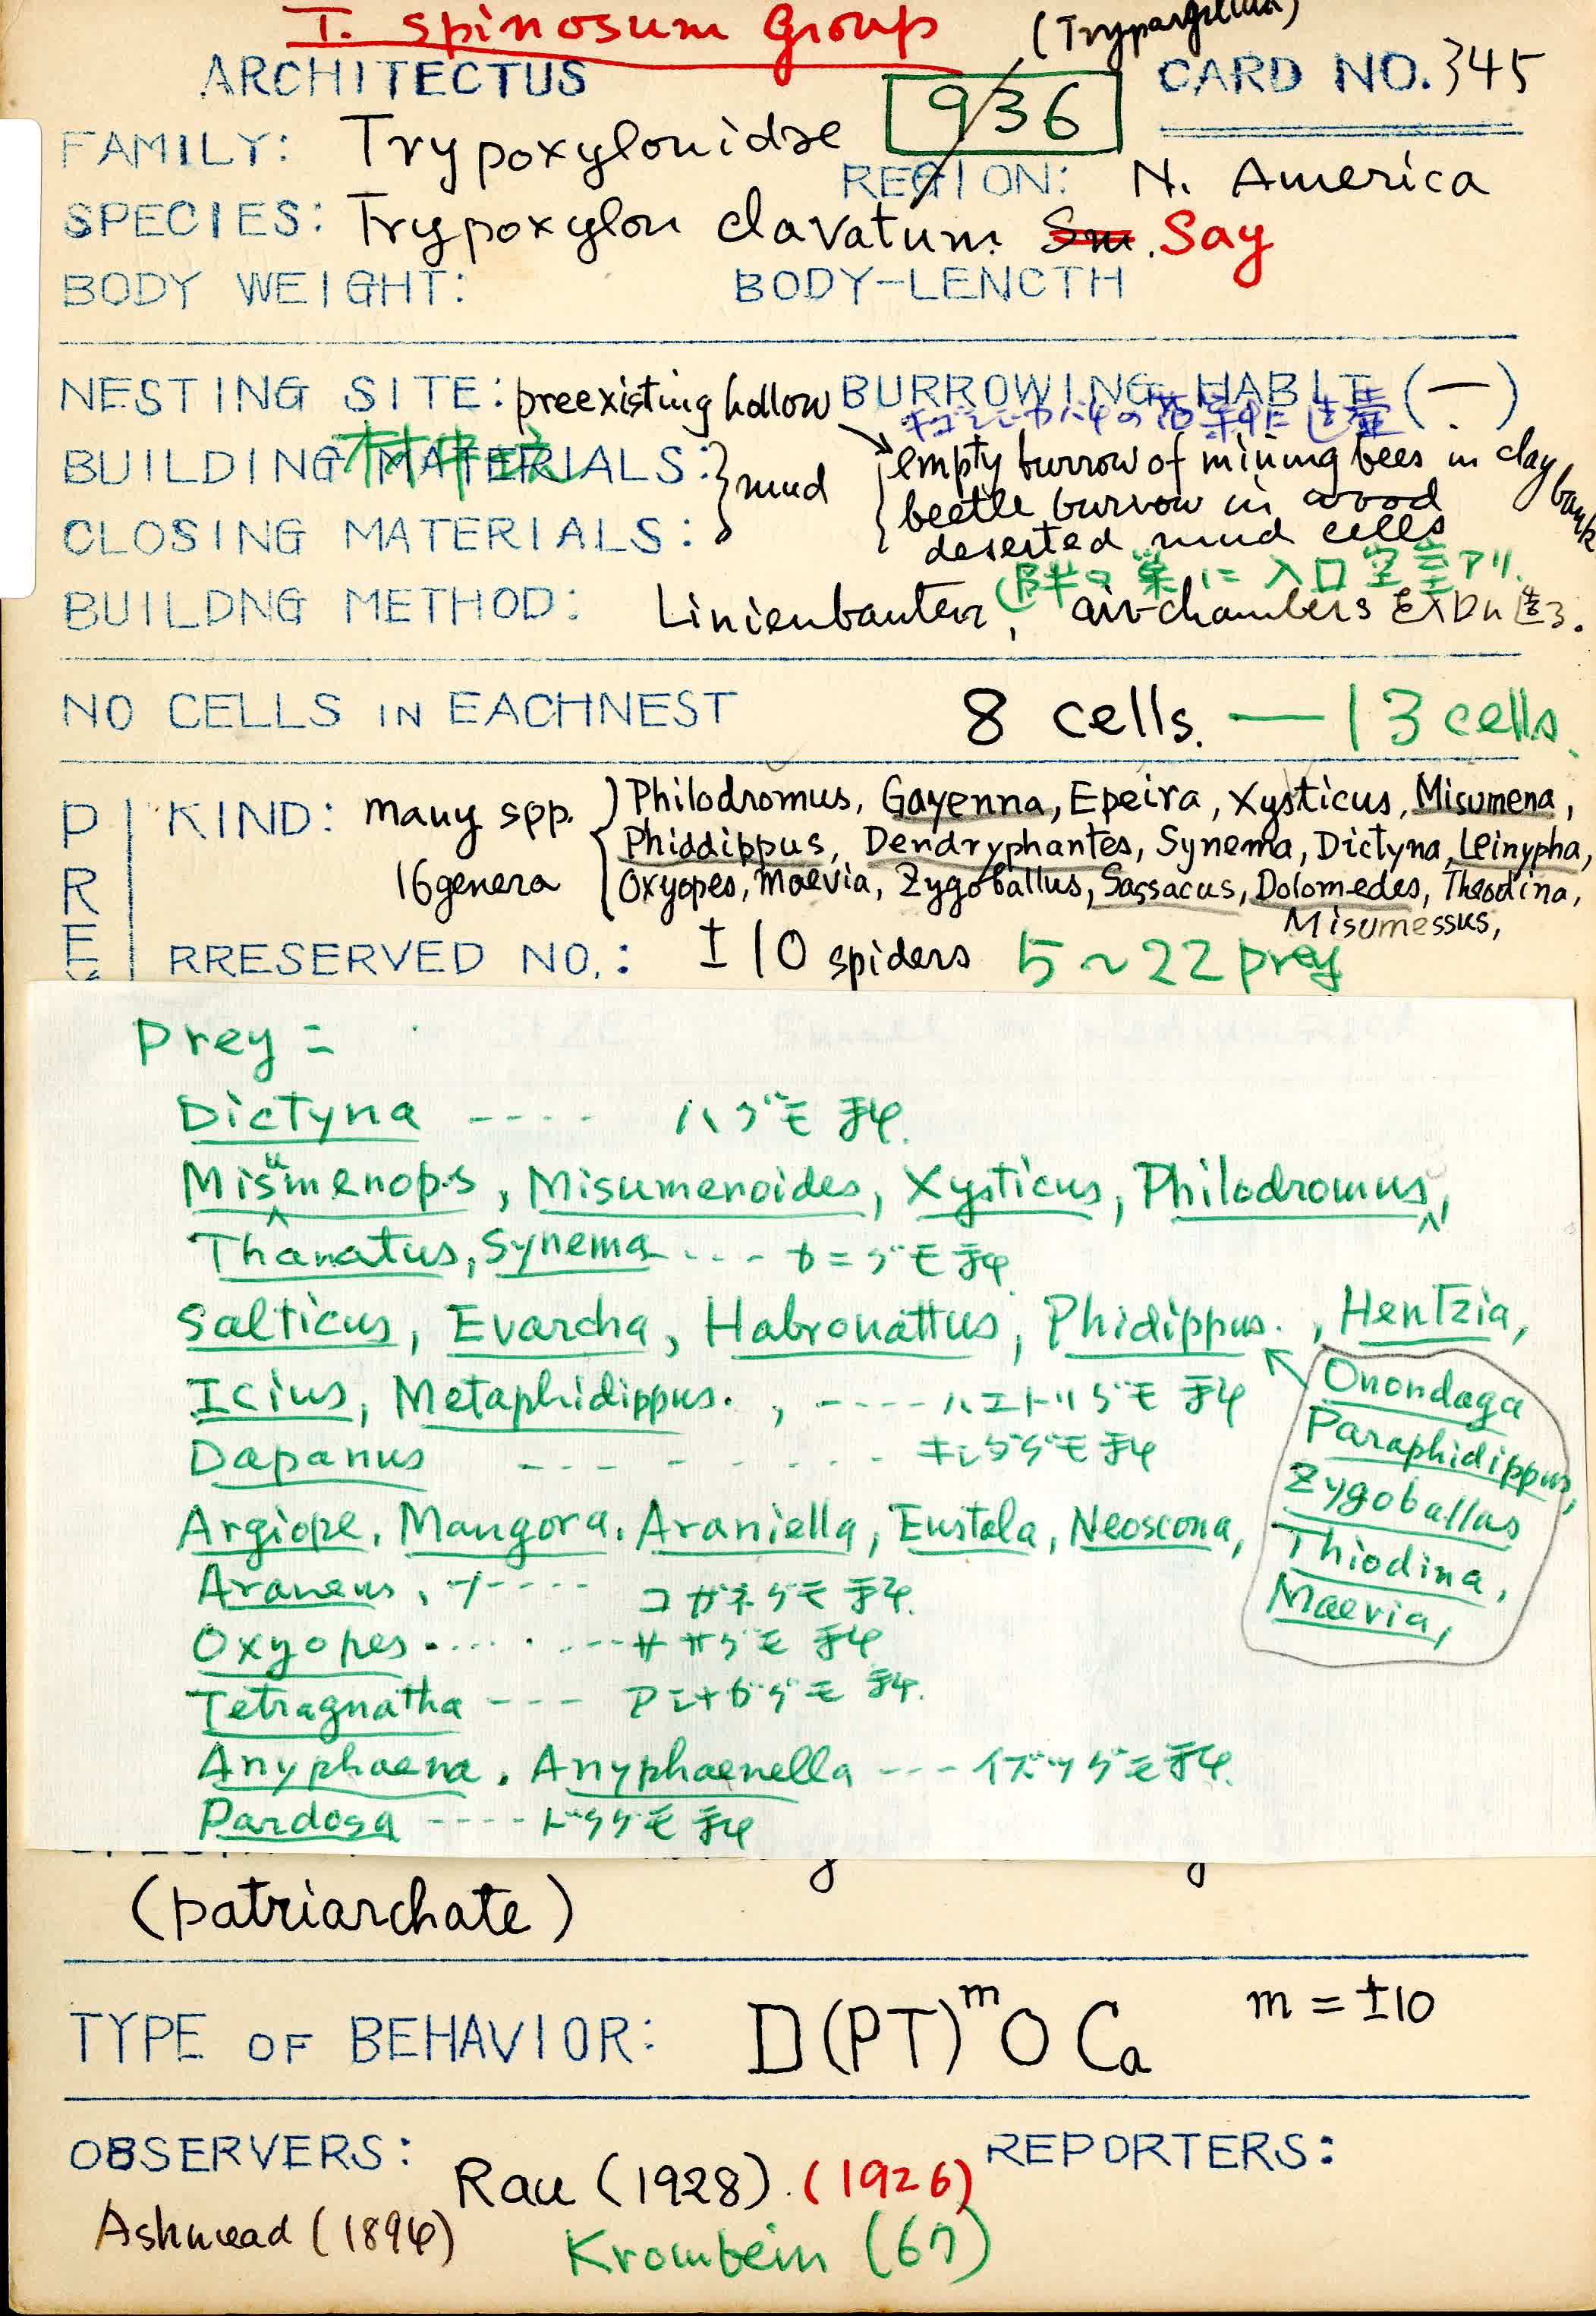 T. spinosum Group
ARCHITECTUS
936
CARD NO. 345
FAMILY: Trypoxylonidae
REGION: N. America
SPECIES: Trypoxylon clavatum Sm. Say
BODY WEIGHT: BODY-LENGTH
NESTING SITE: preexisting hollow BURROWING HABIT (-)
BUILDING MATERIALS: } mud
empty burrow of mining bees in clay bank
beetle burrow in wood
deserted mud cells
CLOSING MATERIALS:
BUILDNG METHOD: Linienbauten, air-chambers
NO CELLS IN EACHNEST 8 cells. — 13 cells.
PREY
KIND: many spp. 16 genera
Philodromus, Gayenna, Epeira, Xysticus, Misumena,
Phiddippus, Dendryphantes, Synema, Dictyna, Leinypha,
Oxyopes, Maevia, Zygoballus, Sassacus, Dolomedes, Theodina,
Misumessus,
RRESERVED NO.: ±10 spiders 5~22 prey
Prey =
Dictyna ---- ハグモ科.
Misumenops, Misumenoides, Xysticus, Philodromus,
Thanatus, Synema ---- カニグモ科
Salticus, Evarcha, Habronattus, Phidippus., Hentzia,
Icius, Metaphidippus., ---- ハエトリグモ科
Onondaga
Paraphidippus,
Zygoballus
Thiodina,
Maevia,
Dapanus --------- キシダグモ科
Argiope, Mangora, Araniella, Eustala, Neoscona,
Araneus, ---- コガネグモ科.
Oxyopes ........ ササグモ科
Tetragnatha --- アシナガグモ科.
Anyphaena, Anyphaenella --- イヅツグモ科.
Pardosa ---- ドクグモ科
(patriarchate)
TYPE OF BEHAVIOR: D(PT)ᵐOCa m = ±10
OBSERVERS: Rau (1928). (1926) REPORTERS:
Ashmead (1894) Krombein (67)